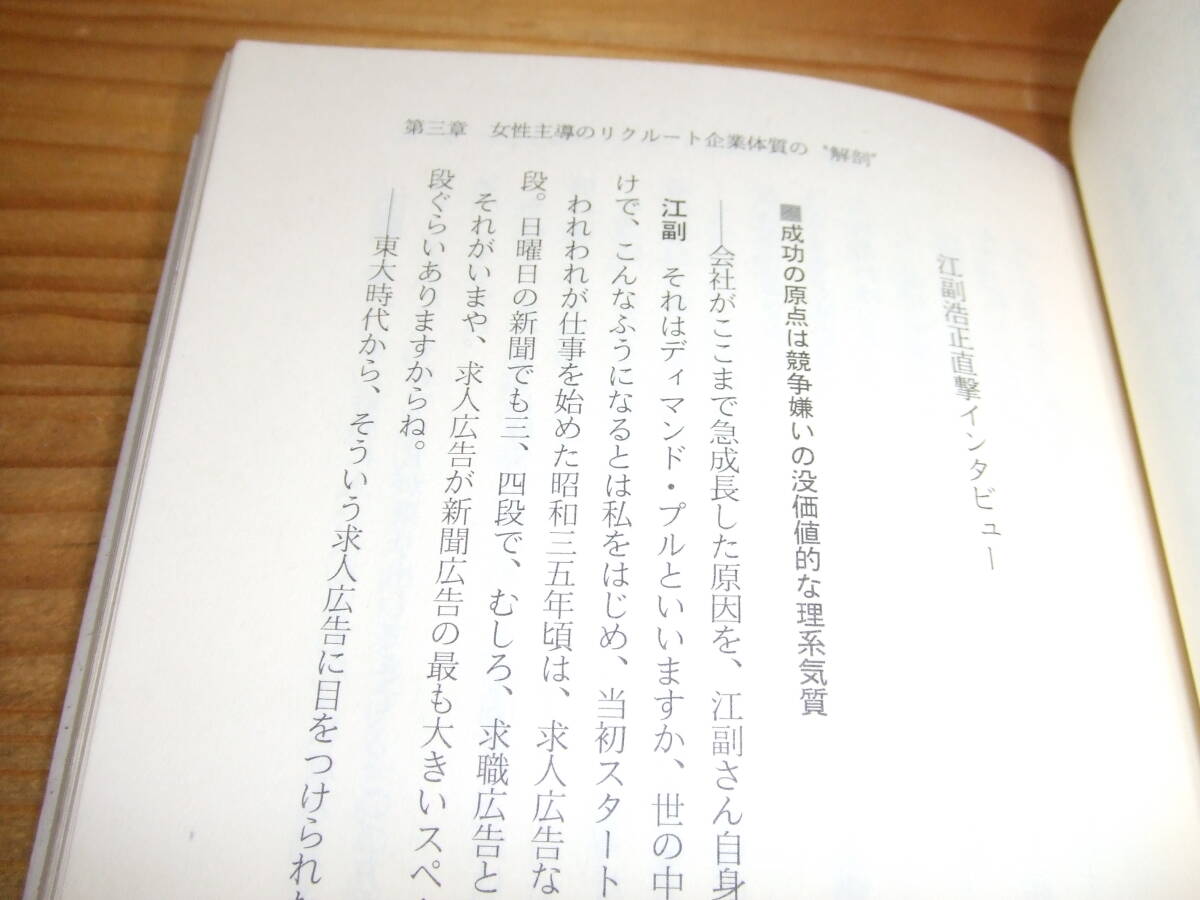 第三章 女性主導のリクルート企業体質の〝解剖〟
江副浩正直撃インタビュー
■成功の原点は競争嫌いの没価値的な理系気質
――会社がここまで急成長した原因を、江副さん自身
江副 それはディマンド・プルといいますか、世の中
けで、こんなふうになるとは私をはじめ、当初スタート
われわれが仕事を始めた昭和三五年頃は、求人広告な
段。日曜日の新聞でも三、四段で、むしろ、求職広告と
それがいまや、求人広告が新聞広告の最も大きいスペ
段ぐらいありますからね。
――東大時代から、そういう求人広告に目をつけられ